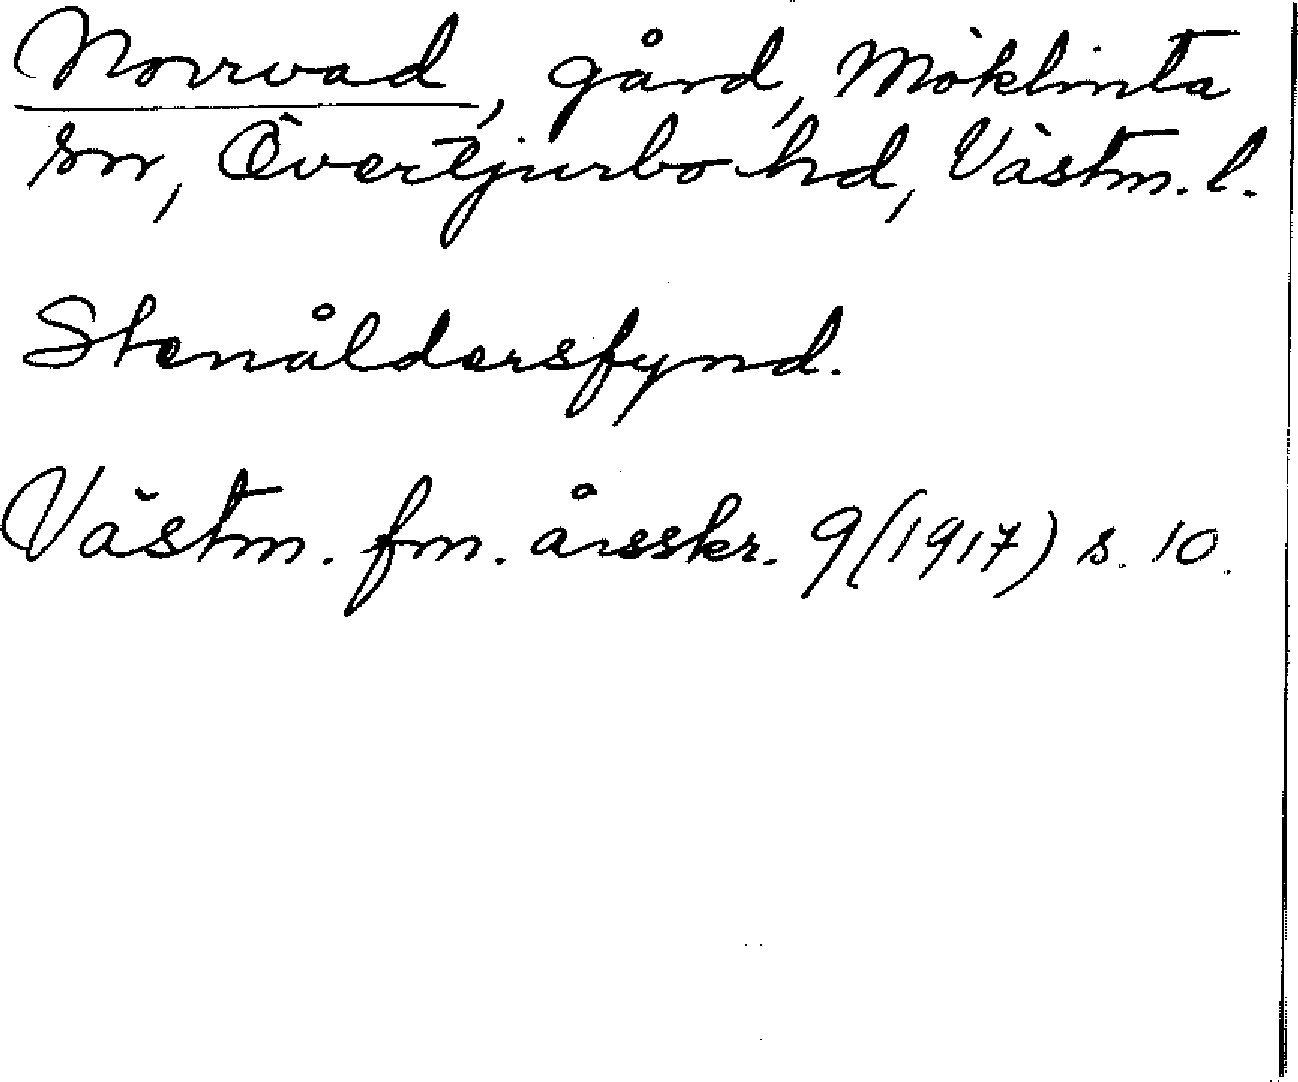 Norrvad, gård, Möklinta
sn, Övertjurbo hd, Västm. l.
Stenåldersfynd.
Västm. fm. årsskr. 9 (1917) s. 10.